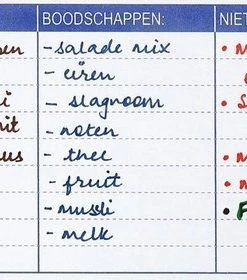 BOODSCHAPPEN: NIE
- salade mix
- eiren
- slagroom
- noten
- thee
- fruit
- musli
- melk